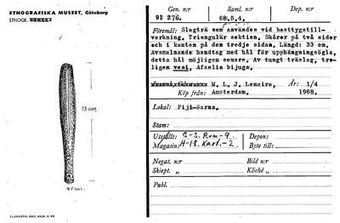 ETNOGRAFISKA MUSEET, Göteborg
ETNOGR.
33 cm
Gen. nr
Saml. nr
Dep. nr
68.5.4.
Föremål: Slagträ som användes vid basttygstill-
verkning. Triangulär sektion. Skåror på två sidor
och i kanten på den tredje sidan. Längd: 33 cm.
Avsmalnande handtag med hål för upphängningsögla,
detta hål möjligen senare. Av tungt träslag, tro-
ligen vesi, Afselia bijuga.
M. L. J. Lemaire,
År: 1/4
Köp från: Amsterdam,
1968.
Lokal: Fiji-
Stam:
Utställt:
Depon:
Magasin:
Byte till:
Negat. nr
Bild nr
Skiopt. „
Kliché „
Publ.